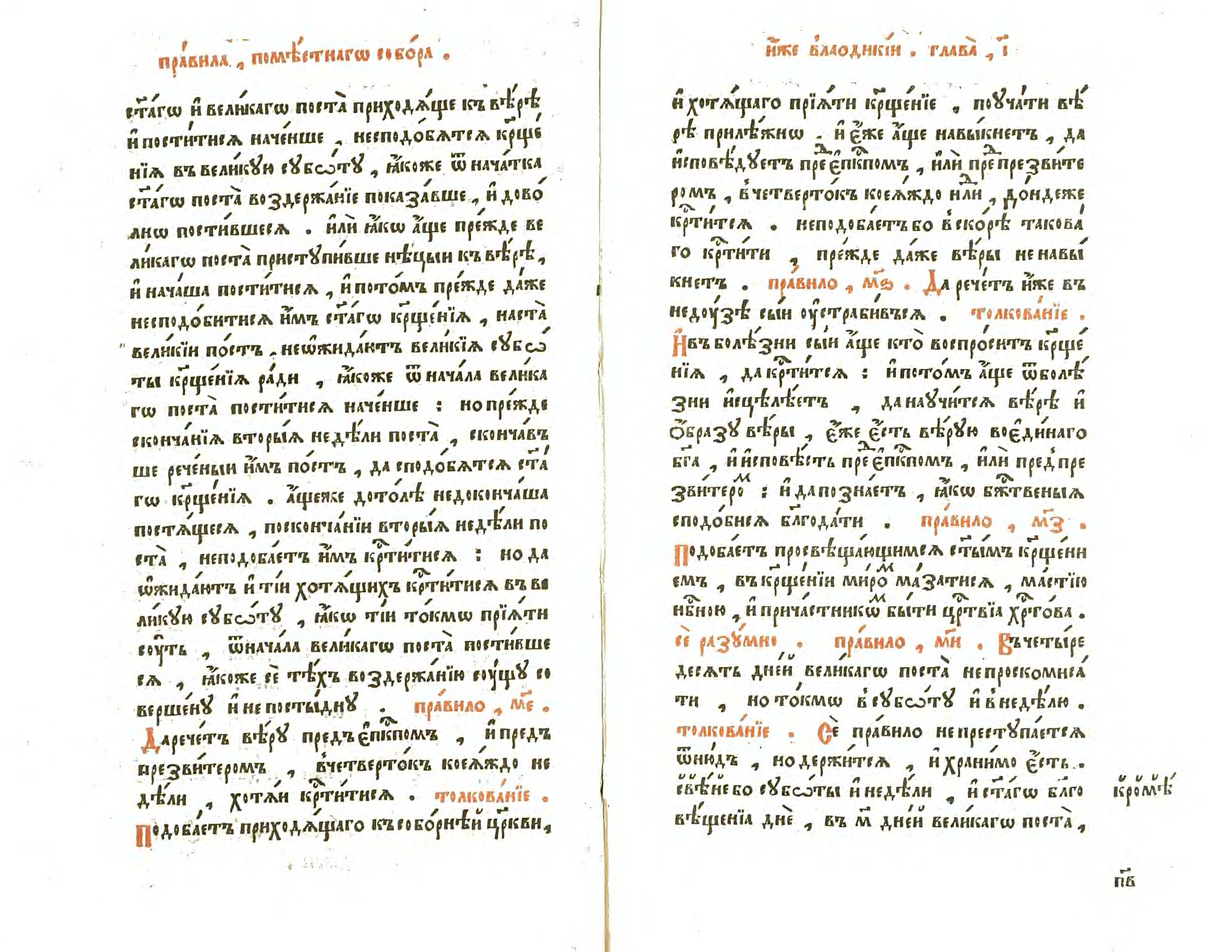 пра́вила , помѣ́стнагѡ собо́ра .
ст҃а́гѡ и҆ вели́кагѡ поста̀ приходѧ́ще къ вѣ́рѣ
и҆ пости́тисѧ наче́нше , несподо́бѧтсѧ крⷭ҇ще́
нїѧ въ вели́кую субѡ́ту , ꙗ҆́коже ѿ нача́тка
ст҃а́гѡ поста̀ воздержа́нїе показа́вше , и҆ дово́
лнѡ пости́вшесѧ . и҆лѝ ꙗ҆́кѡ а҆́ще пре́жде ве
ли́кагѡ поста̀ приступи́вше нѣ́цыи къ вѣ́рѣ ,
и҆ нача́ша пости́тисѧ , и҆ пото́мъ пре́жде да́же
несподо́битисѧ и҆́мъ ст҃а́гѡ крⷭ҇ще́нїѧ , наста̀
вели́кїи по́стъ , неѡ҆жида́ютъ вели́кїѧ субѡ́
ты крⷭ҇ще́нїѧ ра́ди , ꙗ҆́коже ѿ нача́ла вели́ка
гѡ поста̀ пости́тисѧ наче́нше : но пре́жде
сконча́нїѧ вторы́ѧ неде́ли поста̀ , сконча́въ
ше рече́ныи и҆́мъ по́стъ , да сподо́бѧтсѧ ст҃а́
гѡ крⷭ҇ще́нїѧ . а҆́щеже дото́лѣ недоконча́ша
постѧ́щесѧ , посконча́нїи вторы́ѧ неде́ли по
ста̀ , неподоба́етъ и҆́мъ крⷭ҇ти́тисѧ : но да
ѡ҆жида́ютъ и҆ ті́и хотѧ́щихъ крⷭ҇ти́тисѧ въ ве
ли́кую субѡ́ту , ꙗ҆́кѡ ті́и то́кмѡ прїѧ́ти
сꙋ́ть , ѿнача́ла вели́кагѡ поста̀ пости́вше
сѧ , ꙗ҆́коже сѐ тѣ́хъ воздержа́нїю сꙋ́щꙋ со
верше́нꙋ и҆ непосты́днꙋ . пра́вило , м҃е .
Да рече́тъ вѣ́рꙋ предъ є҆пⷭ҇кпомъ , и҆ предъ
презви́теромъ , в четверто́къ коеѧ́ждо не
дѣ́ли , хотѧ́и крⷭ҇ти́тисѧ . толкова́нїе .
Подоба́етъ приходѧ́щаго къ собо́рнѣй цр҃кви ,
и҆́же влаодикі́и . глава̀ , і҃
и҆ хотѧ́щаго прїѧ́ти крⷭ҇ще́нїе , поꙋча́ти вѣ́
рѣ прилѣ́жнѡ . и҆ є҆́же а҆́ще навы́кнетъ , да
и҆сповѣ́дꙋетъ преⷣ є҆пⷭ҇кпомъ , и҆лѝ преⷣ презви́те
ромъ , в четверто́къ коеѧ́ждо нⷣли , до́ндеже
крⷭ҇ти́тсѧ . неподоба́етъ бо вско́рѣ такова́
го крⷭ҇ти́ти , пре́жде да́же вѣ́ры ненавы́
кнетъ . пра́вило , м҃ѕ . Да рече́тъ и҆́же въ
недꙋ́зѣ сы́и оу҆стра́бивъсѧ . толкова́нїе .
И҆ въ болѣ́зни сы́и а҆́ще кто̀ воспро́ситъ крⷭ҇ще́
нїѧ , да крⷭ҇ти́тсѧ : и҆ пото́мъ а҆́ще ѿ болѣ́
зни и҆сцѣлѣ́етъ , да наꙋчи́тсѧ вѣ́рѣ и҆
ѻ҆́бразꙋ вѣ́ры , є҆́же є҆́сть вѣ́рꙋю во є҆ди́наго
бг҃а , и҆ и҆сповѣ́сть преⷣ є҆пⷭ҇кпомъ , и҆лѝ предпре
зви́тероⷨ : и҆ да позна́етъ , ꙗ҆́кѡ бж҃твеныѧ
сподо́бисѧ бл҃года́ти . пра́вило , м҃з .
Подоба́етъ просвѣща́ющимсѧ ст҃ы́мъ крⷭ҇ще́ни
емъ , въ крⷭ҇ще́нїи ми́роⷨ ма́затисѧ , ма́стїю
нбⷭ҇ною , и҆ прича́стникѡⷨ бы́ти црⷭ҇твїа хрⷭ҇то́ва .
сѐ разꙋ́мно . пра́вило , м҃и . Въ четы́ре
десѧть дне́й вели́кагѡ поста̀ непроскомиса́
ти , но то́кмѡ в субѡ́тꙋ и҆ в неде́лю .
толкова́нїе . Сѐ пра́вило непрестꙋпа́етсѧ
ѿню́дъ , но держи́тсѧ , и҆ храни́мо є҆́сть .
свѣ́не бо субѡ́ты и҆ неде́ли , и҆ ст҃а́гѡ бл҃го
вѣ́щенїа днѐ , въ м҃ дне́й вели́кагѡ поста̀ ,
кро́мѣ
п҃в